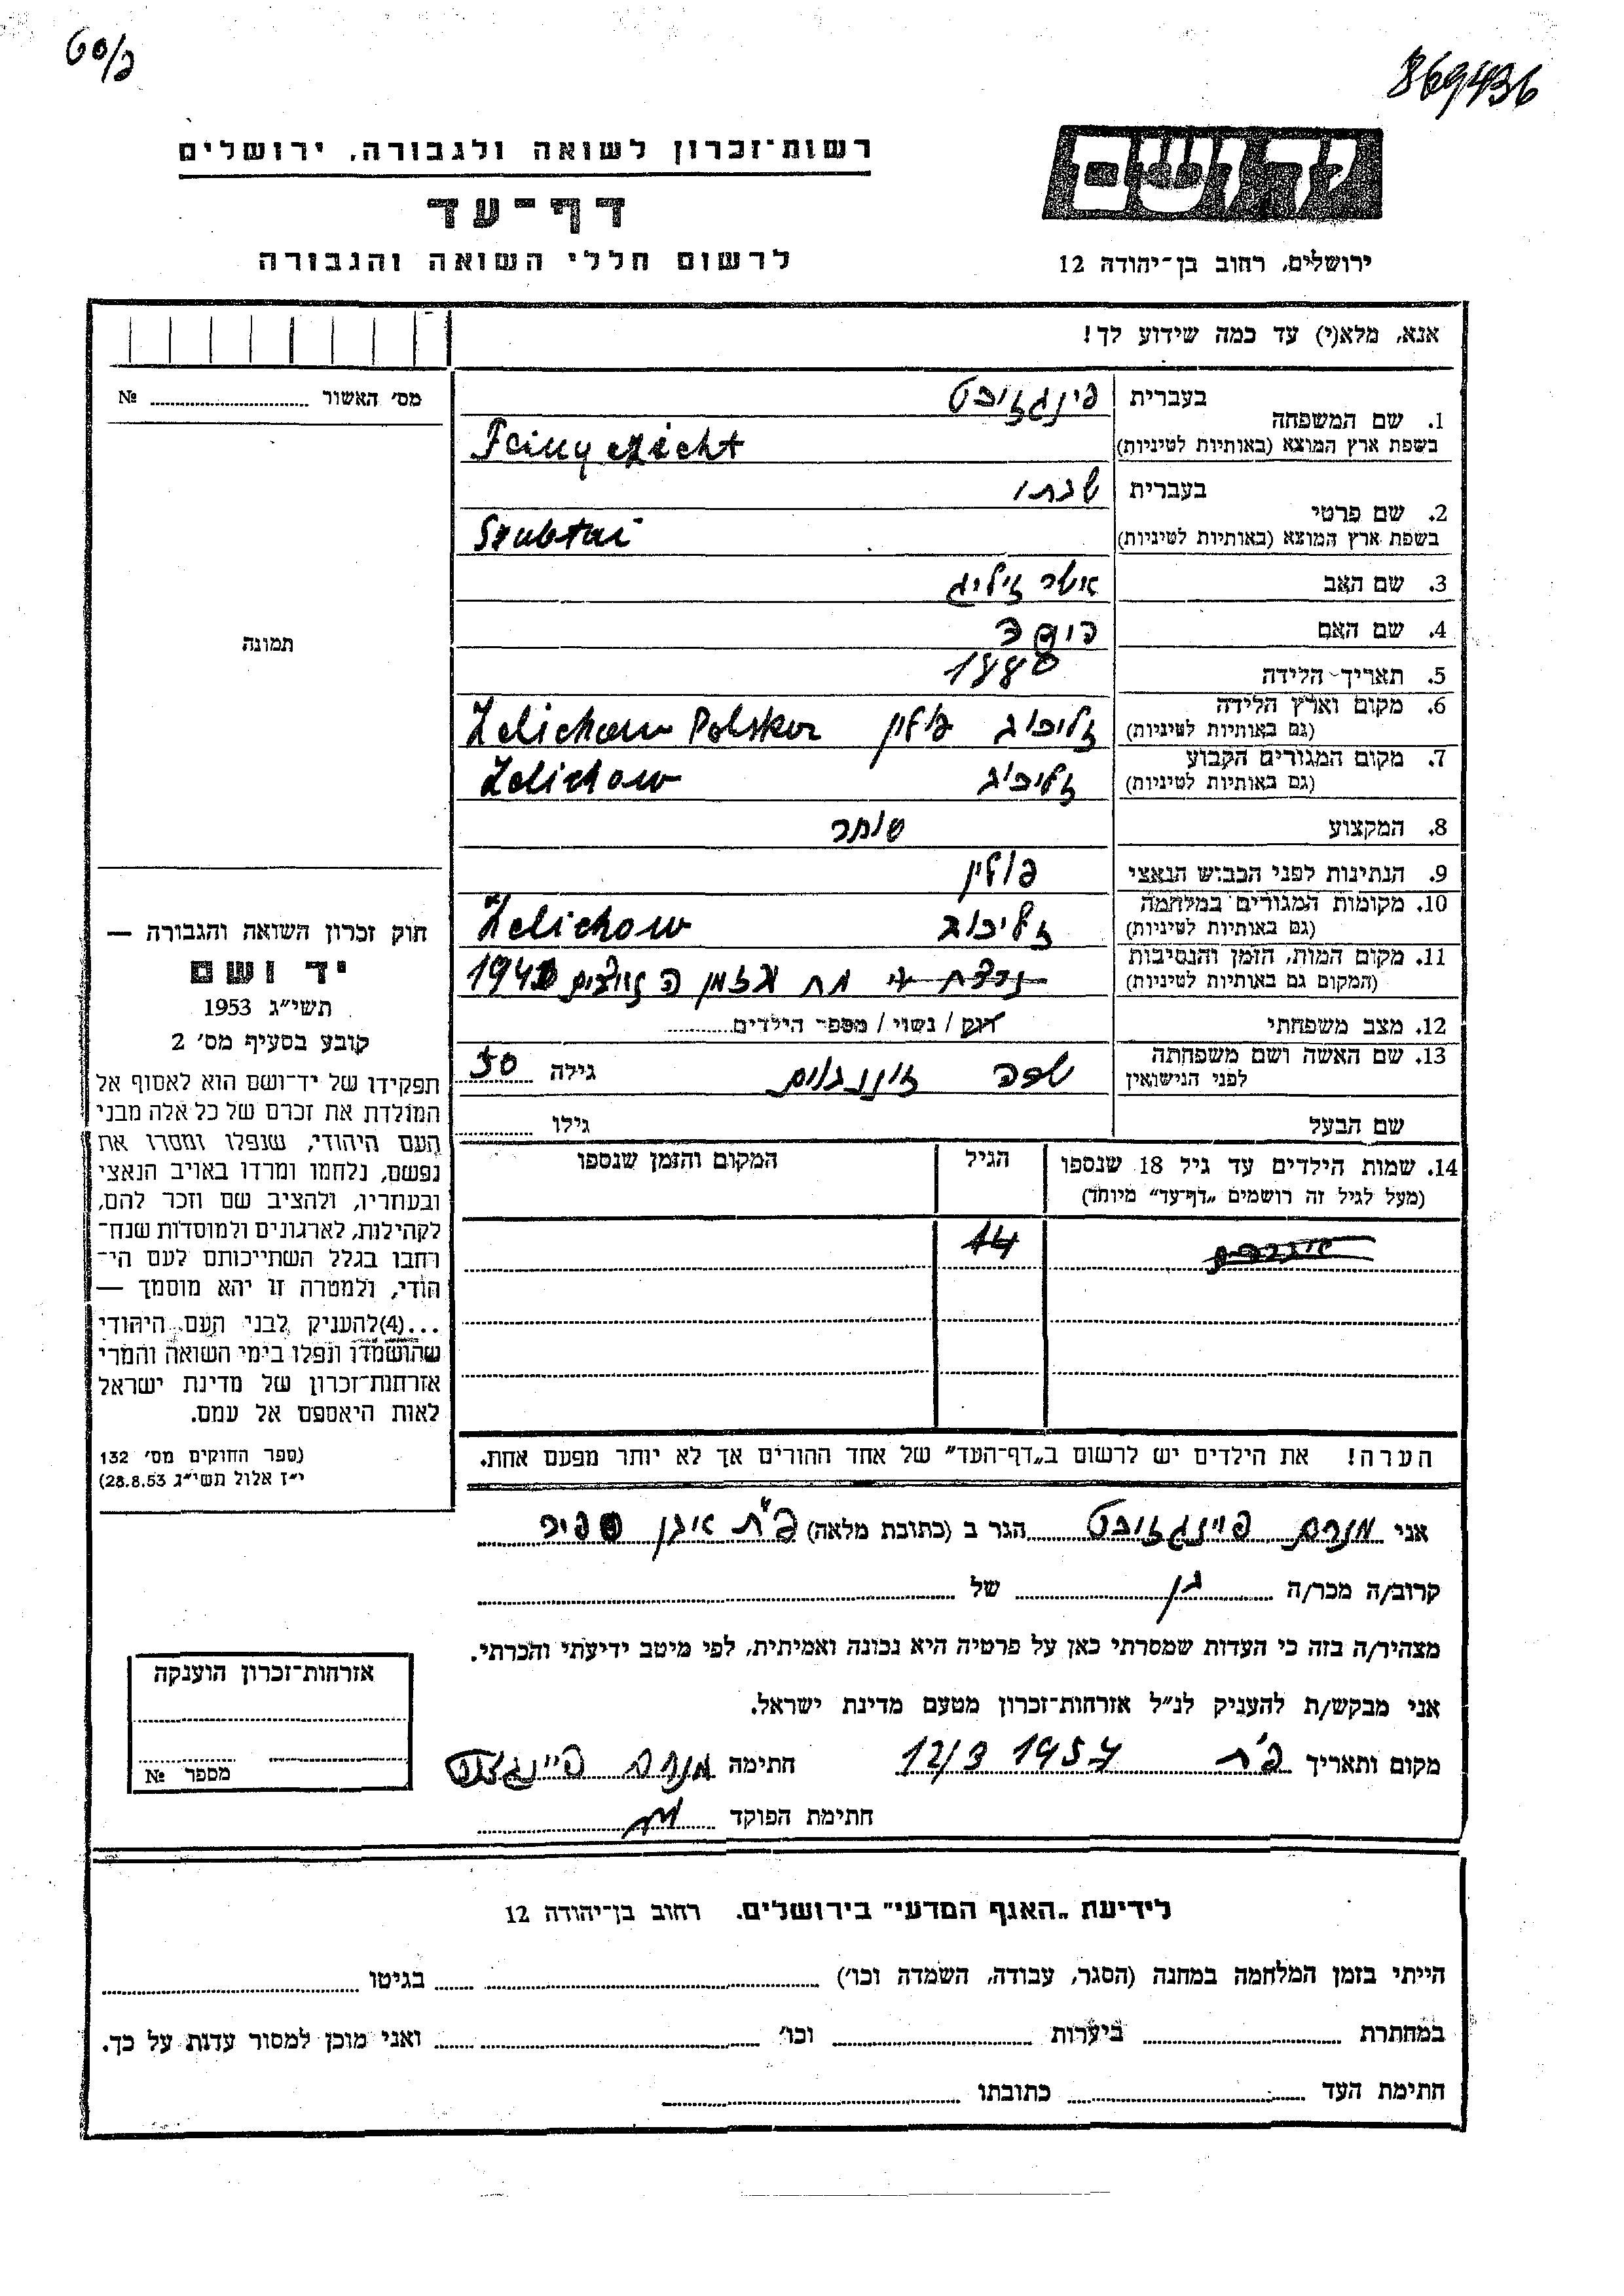 60/כ
869436
רשות־זכרון לשואה ולגבורה, ירושלים
דף־עד
לרשום חללי השואה והגבורה
יד ושם
ירושלים, רחוב בן־יהודה 12
אנא, מלא(י) עד כמה שידוע לך!
מס׳ האשור № 
בעברית
פינגזיכט
1. שם המשפחה
בשפת ארץ המוצא (באותיות לטיניות)
Feingezicht
בעברית
שבתי
2. שם פרטי
בשפת ארץ המוצא (באותיות לטיניות)
Szabtai
3. שם האב אשר זיליג
4. שם האם
5. תאריך הלידה 1880
6. מקום וארץ הלידה
(גם באותיות לטיניות)
זליכוב פולין Zelichow Polska
7. מקום המגורים הקבוע
(גם באותיות לטיניות)
זליכוב Zelichow
8. המקצוע סוחר
9. הנתינות לפני הכבוש הנאצי פולין
10. מקומות המגורים במלחמה
(גם באותיות לטיניות)
זליכוב Zelichow
11. מקום המות, הזמן והנסיבות
(המקום גם באותיות לטיניות)
מת בזמן ה נאצים
12. מצב משפחתי רוק / נשוי / מספר הילדים
13. שם האשה ושם משפחתה
לפני הנישואין
שרה גילה 50
שם הבעל גילו
14. שמות הילדים עד גיל 18 שנספו
(מעל לגיל זה רושמים „דף־עד” מיוחד)
הגיל
המקום והזמן שנספו
14
הערה! את הילדים יש לרשום ב„דף־העד” של אחד ההורים אך לא יותר מפעם אחת.
תמונה
חוק זכרון השואה והגבורה —
יד ושם
תשי״ג 1953
קובע בסעיף מס׳ 2
תפקידו של יד־ושם הוא לאסוף אל
המולדת את זכרם של כל אלה מבני
העם היהודי, שנפלו ומסרו את
נפשם, נלחמו ומרדו באויב הנאצי
ובעוזריו, ולהציב שם וזכר להם,
לקהילות, לארגונים ולמוסדות שנח־
רחבו בגלל השתייכותם לעם הי־
הודי, ולמטרה זו יהא מוסמך —
...(4) להעניק לבני העם היהודי
שהושמדו ונפלו בימי השואה והמרי
אזרחות־זכרון של מדינת ישראל
לאות היאספם אל עמם.
(ספר החוקים מס׳ 132
י״ז אלול תשי״ג 28.8.53)
אני מנחם פיינגזיכט הגר ב (כתובת מלאה) פ״ת
קרוב/ה מכר/ה בן של
מצהיר/ה בזה כי העדות שמסרתי כאן על פרטיה היא נכונה ואמיתית, לפי מיטב ידיעתי והכרתי.
אני מבקש/ת להעניק לנ״ל אזרחות־זכרון מטעם מדינת ישראל.
מקום ותאריך פ״ת 12/3 1957 חתימה מנחם פיינגזיכט
חתימת הפוקד
אזרחות־זכרון הוענקה
מספר №
לידיעת „האגף המדעי” בירושלים, רחוב בן־יהודה 12
הייתי בזמן המלחמה במחנה (הסגר, עבודה, השמדה וכו׳) בגיטו
במחתרת ביערות וכו׳ ואני מוכן למסור עדות על כך.
חתימת העד כתובתו